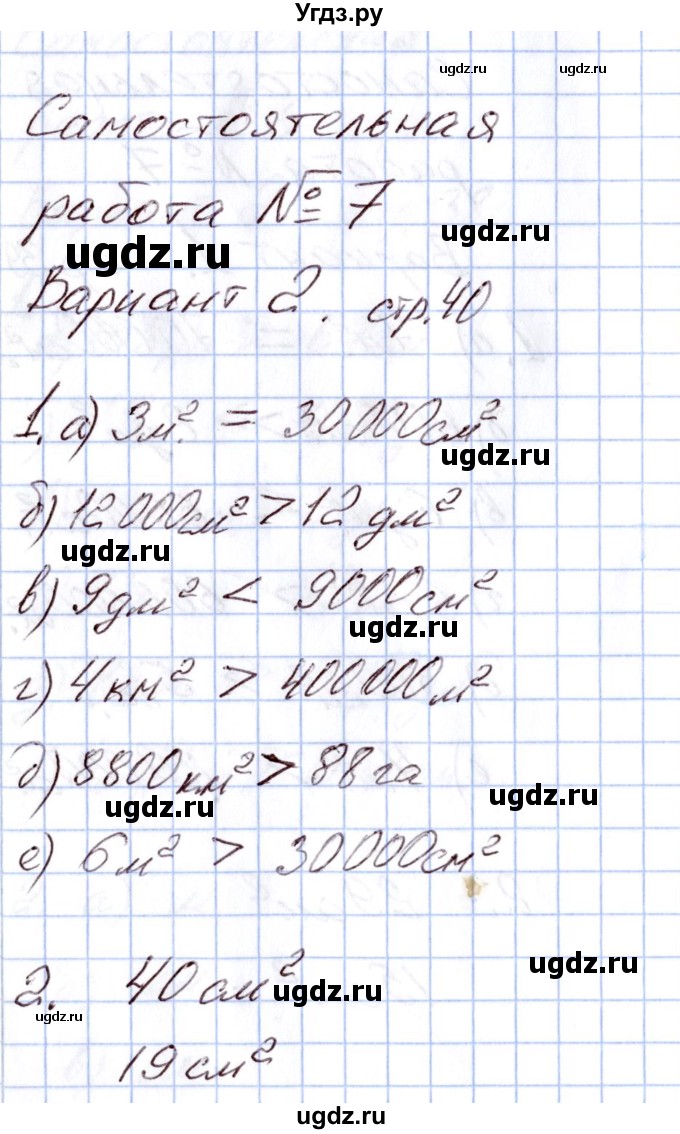 Угдз.ру
ugdz.ru
ugdz.ru
Самостоятельная
работа № 7
ugdz.ru
ugdz.ru
Вариант 2. стр.40
1. а) 3м² = 30000см²
ugdz.ru
б) 12000см² > 12 дм²
ugdz.ru
в) 9дм² < 9000см²
ugdz.ru
г) 4км² > 400000м²
д) 8800км² > 88га
ugdz.ru
ugdz.ru
е) 6м² > 30000см²
2. 40см²
ugdz.ru
ugdz.ru
ugdz.ru
19см²
ugdz.ru